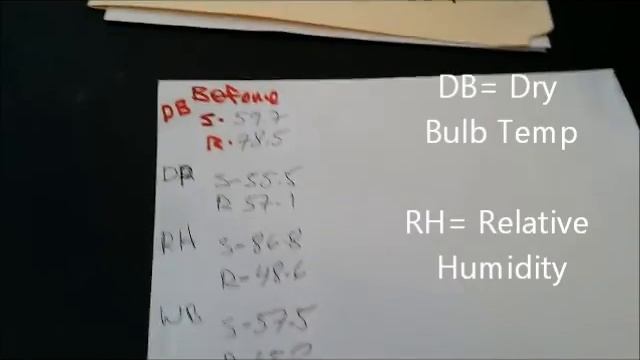 Before
DB S. 59.7
R. 78.5
DP S-55.5
R 57.1
RH S-86.8
R-48.6
WB S-57.5
DB= Dry
Bulb Temp
RH= Relative
Humidity